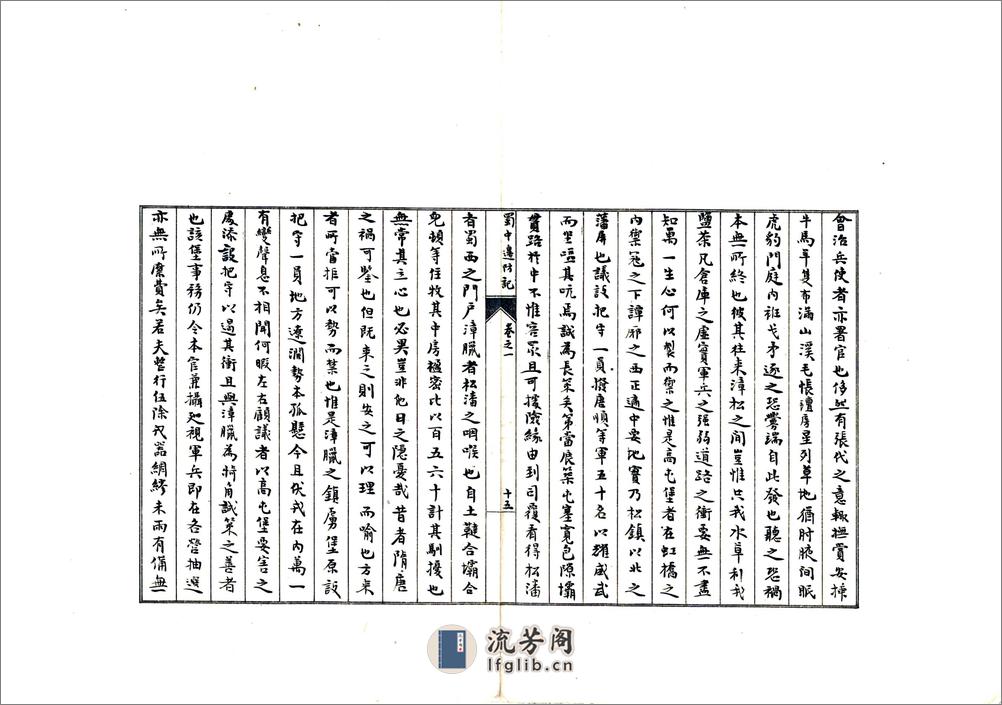 會治兵使者亦署官也侈然有張代之意輒撫賞安揷
牛馬羊隻布滿山溪毛帳氊房星列草地猶肘腋間眠
虎豹門庭內班戈矛逐之恐釁端自此發也聽之恐禍
本無所終也彼其往来漳松之間豈惟共我水草利我
鹽茶凡倉庫之虛實軍兵之强弱道路之衝要無不盡
知萬一生心何以製而禦之惟是高屯堡者在虹橋之
內禦冦之下譚邪之西正適中要地實乃松鎮以北之
藩屏也議設把守一員撥唐順等軍五十名以耀威武
而坐嗌其吭焉誠為長策矣第當展築屯塞寬包隙壩
貫路於中不惟容衆且可據險緣由到司覆看得松潘
蜀中邊防記
卷之一
十五
者蜀西之門户漳臘者松潘之咽喉也自土韃合壩合
兒頓等住牧其中房襁密比以百五六十計其馴擾也
無常其立心也必異豈非他日之隱憂哉昔者隋唐
之禍可鑒也但旣来之則安之可以理而喻也方来
者所當拒可以勢而禁也惟是漳臘之鎮虜堡原設
把守一員地方遼濶勢本孤懸今且伏戎在內萬一
有變聲息不相聞何暇左右顧議者以高屯堡要害之
處添設把守以遏其衝且與漳臘為犄角誠策之善者
也該堡事務仍令本官兼攝処視軍兵即在各營抽選
亦無所縻費矣若夫整行伍除戎器綢繆未雨有備無
流芳阁
lfglib.cn